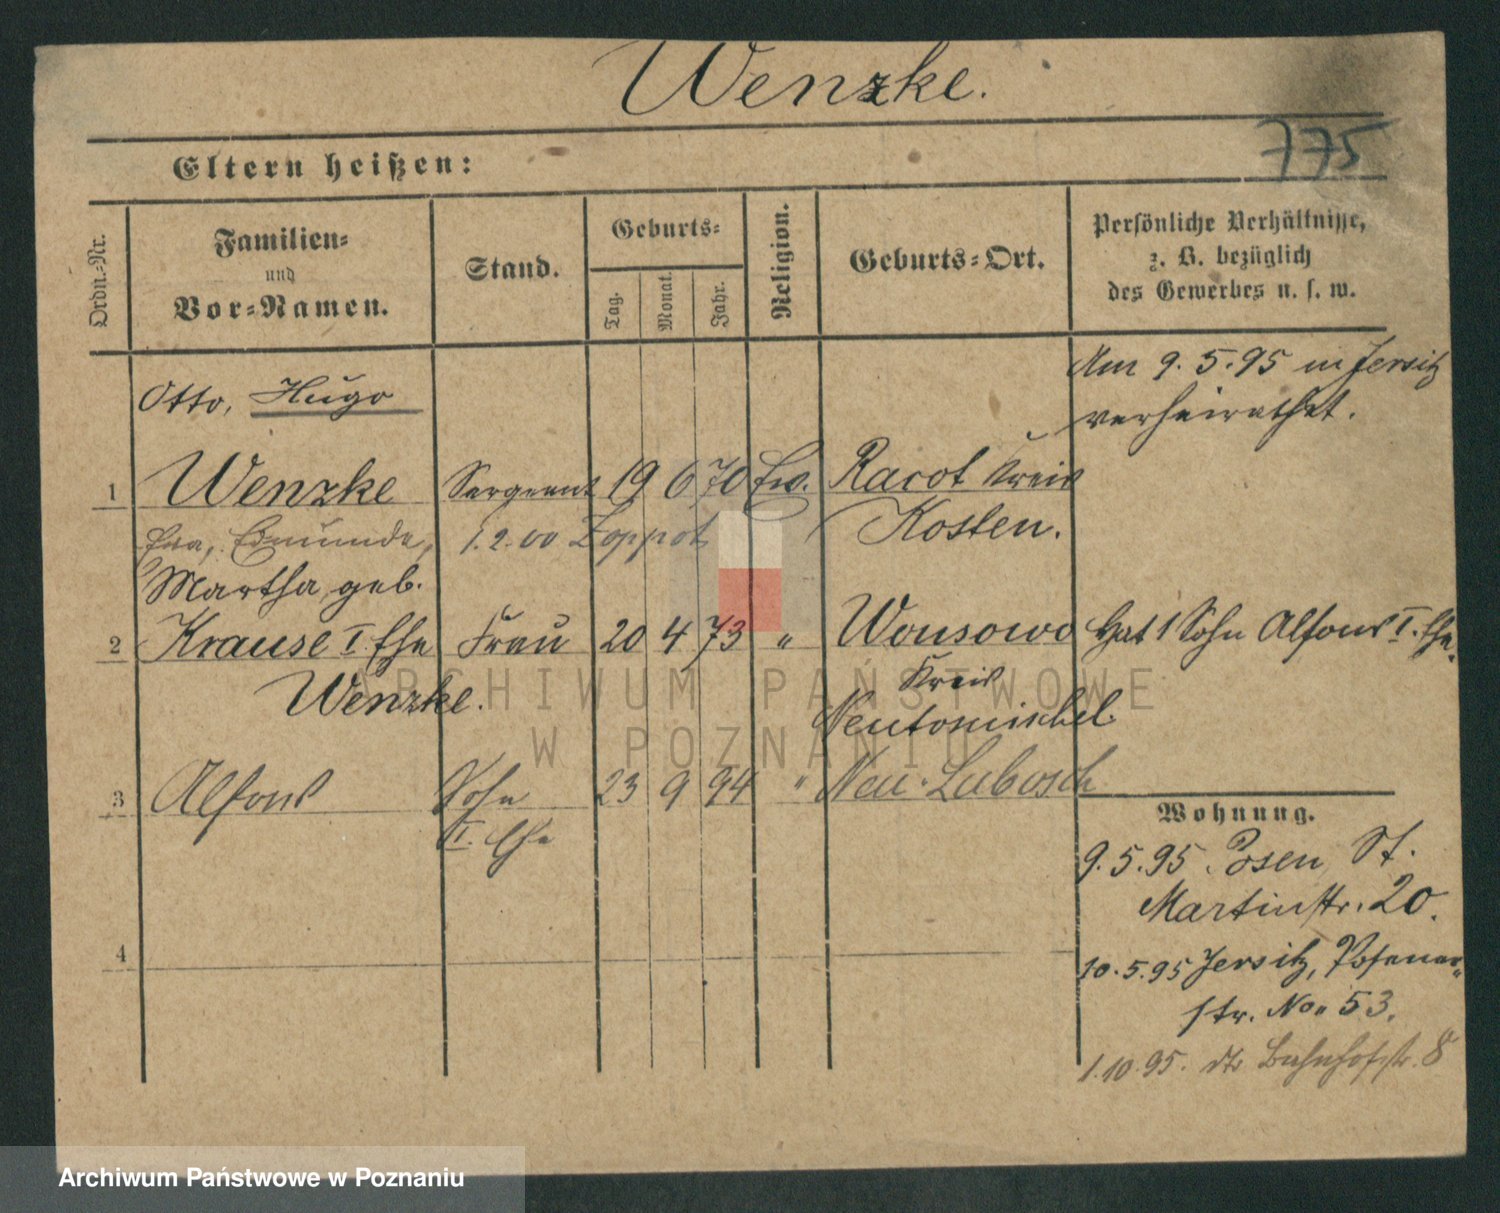 Wenzke.
775
Eltern heißen:
Ordn.=Nr.
Familien=
und
Vor=Namen.
Stand.
Geburts=
Tag.
Monat.
Jahr.
Religion.
Geburts=Ort.
Persönliche Verhältnisse,
z. B. bezüglich
des Gewerbes u. s. w.
Am 9.5.95 in Jersitz
verheirathet.
Otto, Hugo
1 Wenzke Sergeant 19 6 70 Ev. Racot Kreis
Kosten.
Edmunde, 1.2.00 Zoppot
Martha, geb.
2 Krause I. Ehe Frau 20 4 73 " Wonsowo Hat 1 Sohn Alfons I. Ehe.
Wenzke. Kreis
Neutomischel.
3 Alfons Sohn 23 9 94 " Neu-Lubosch
I. Ehe
4
Wohnung.
9.5.95. Posen, St.
Martinstr. 20.
10.5.95 Jersitz, Posener-
str. No. 53.
1.10.95. Bahnhofstr. 8
ARCHIWUM PAŃSTWOWE
W POZNANIU
Archiwum Państwowe w Poznaniu